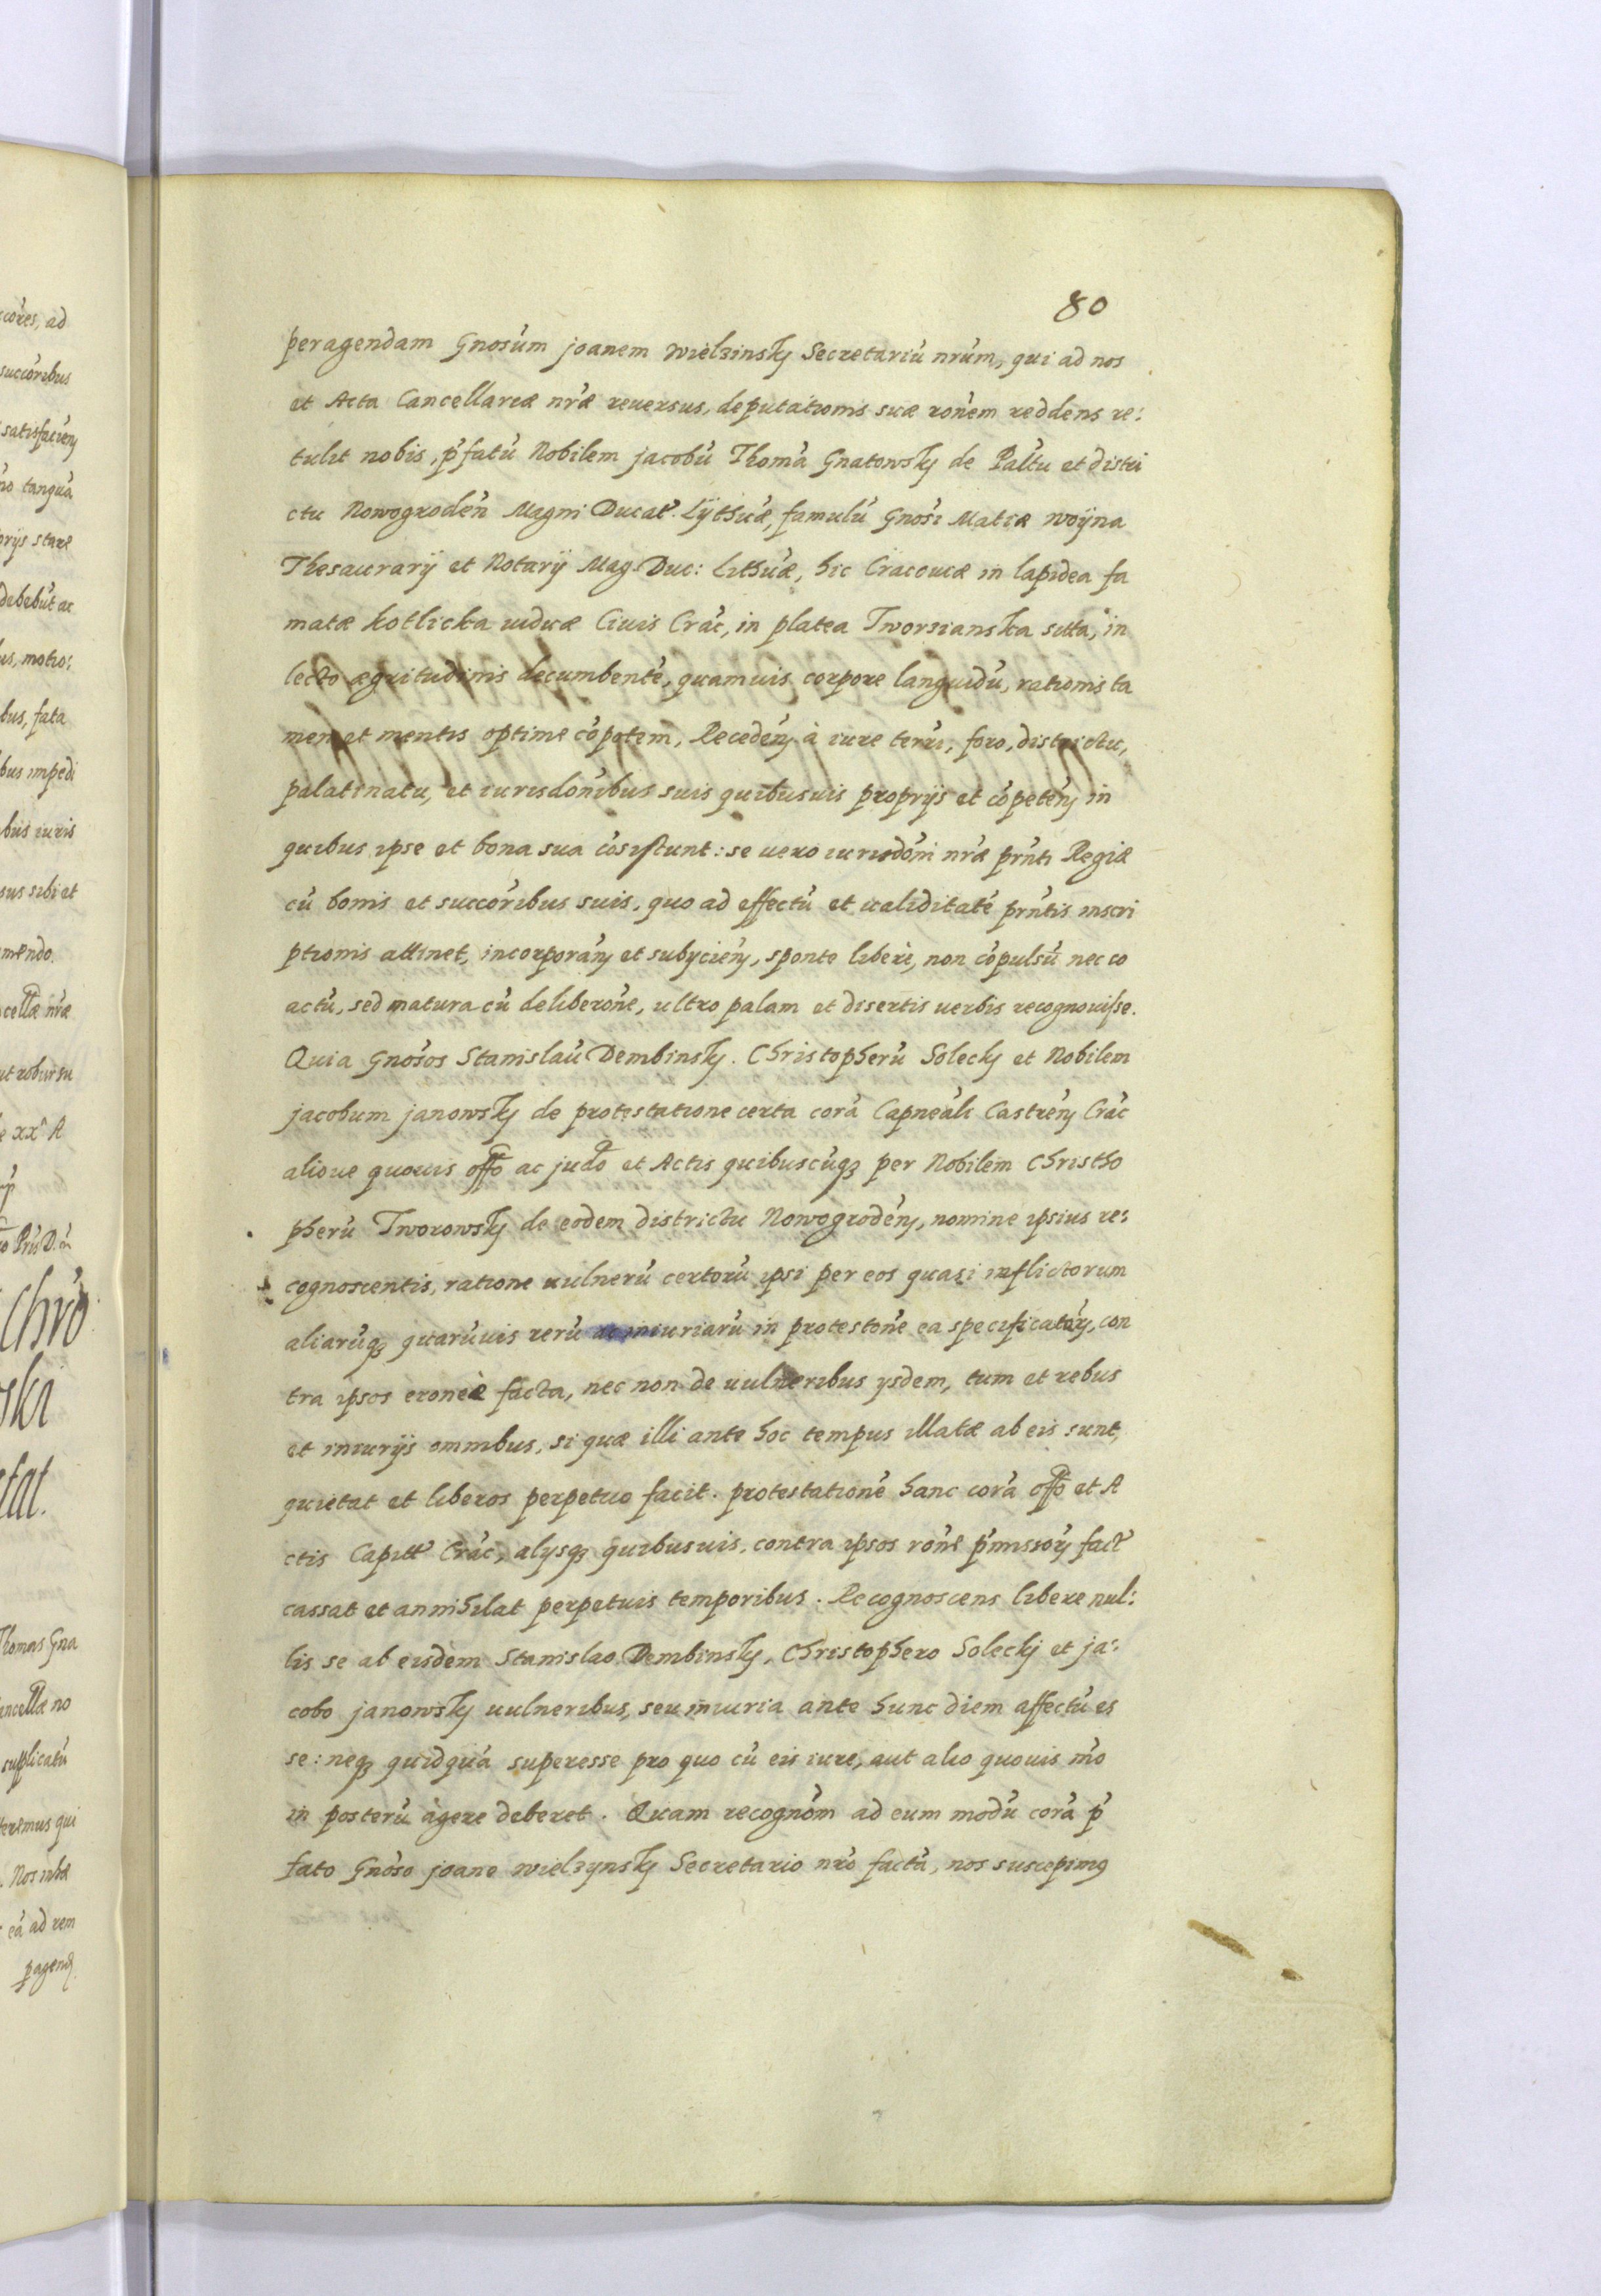 80
peragendam Gnosúm joanem Wielzinsky Secretariú nrúm, qui ad nos
et Acta Cancellariæ nr̃æ reuersus, deputationis suæ ronẽm reddens re:
tulit nobis, p̃fatú Nobilem jacobú Thomá Gnatowsky de Paltu et distri
ctu Nowogrodeń Magni Ducat̃. Lÿthúæ, famulú Gnosi Matiæ Woÿna
Thesaurarÿ et Notarÿ Mag. Duc: Lithúæ, hic Cracouiæ in lapidea fa
matæ Kotlicka uiduæ Ciuis Crác, in platea Tworzianska sitta, in
lecto ægritudinis decumbenté, quamuis corpore languidú, rationis ta
men et mentis optime cópotem, Recedeń à iure terri, foro, districtu,
palatinatu, et iurisdońibus suis quibusuis proprijs et cópeteń in
quibus ipse et bona sua cósistunt: se uero iurisdońi nr̃æ prńti Regiæ
cú bonis et succoŕibus suis, quo ad effectú et ualiditaté prńtis inscri
ptionis attinet, incorporań et subijcień, sponte liberè, non cópulsú nec co
actú, sed matura cú deliberońe, ultro palam et disertis uerbis recognouisse.
Quia Gnosos Stanislaú Dembinsky. Christopherú Solecky et Nobilem
jacobum janowsky de protestatione certa corá Capneáli Castreń Crác
alioue quouis offo ac judo et Actis quibuscúqʒ per Nobilem Christho
pherú Tworowsky de eodem districtu Nowogrodeń, nomine ipsius re:
cognoscentis, ratione uulnerú certorú ipsi per eos quasi inflictorum
aliarúqʒ quarúuis rerú ac iniuriarú in protestońe ea specificatoŕ, con
tra ipsos eroneè facta, nec non de uulneribus ysdem, tum et rebus
et iniurijs omnibus, si quæ illi ante hoc tempus illatæ ab eis sunt,
quietat et liberos perpetuo facit. protestationé hanc corá offo et A
ctis Capitt̃ Crác, alysqʒ quibusuis, contra ipsos rońe p̃missoŕ fact̃
cassat et annihilat perpetuis temporibus. Recognoscens libere nul:
lis se ab eisdem Stanislao Dembinsky, Christophero Solecky et ja:
cobo janowsky uulneribus, seu iniuria ante hunc diem affectú es
se: neqʒ quidquá superesse pro quo cú eis iure, aut alio quouis mó
in posterú àgere deberet. Quam recogńom ad eum modú corá p̃
fato Gnóso joane Wielzynsky Secretario nró factá, nos suscepimꝯ